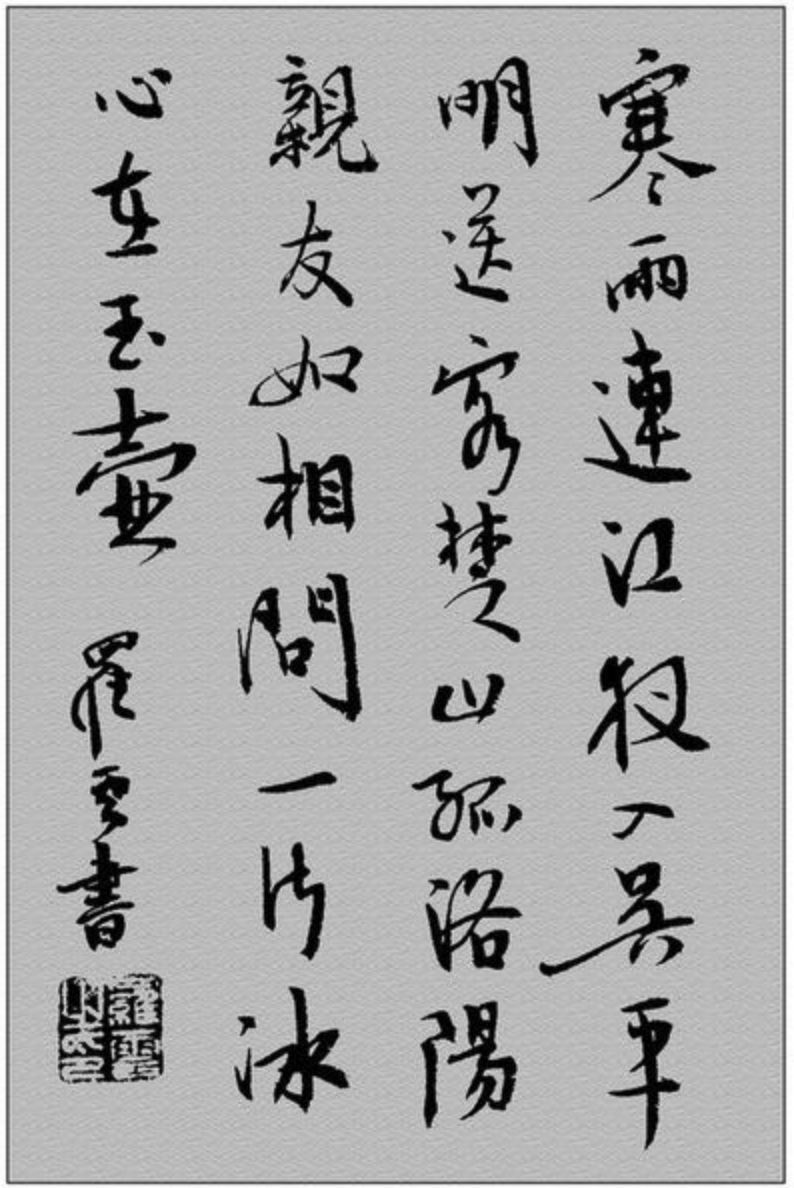 寒雨連江夜入吳平
明送客楚山孤洛陽
親友如相問一片冰
心在玉壺 羅云書